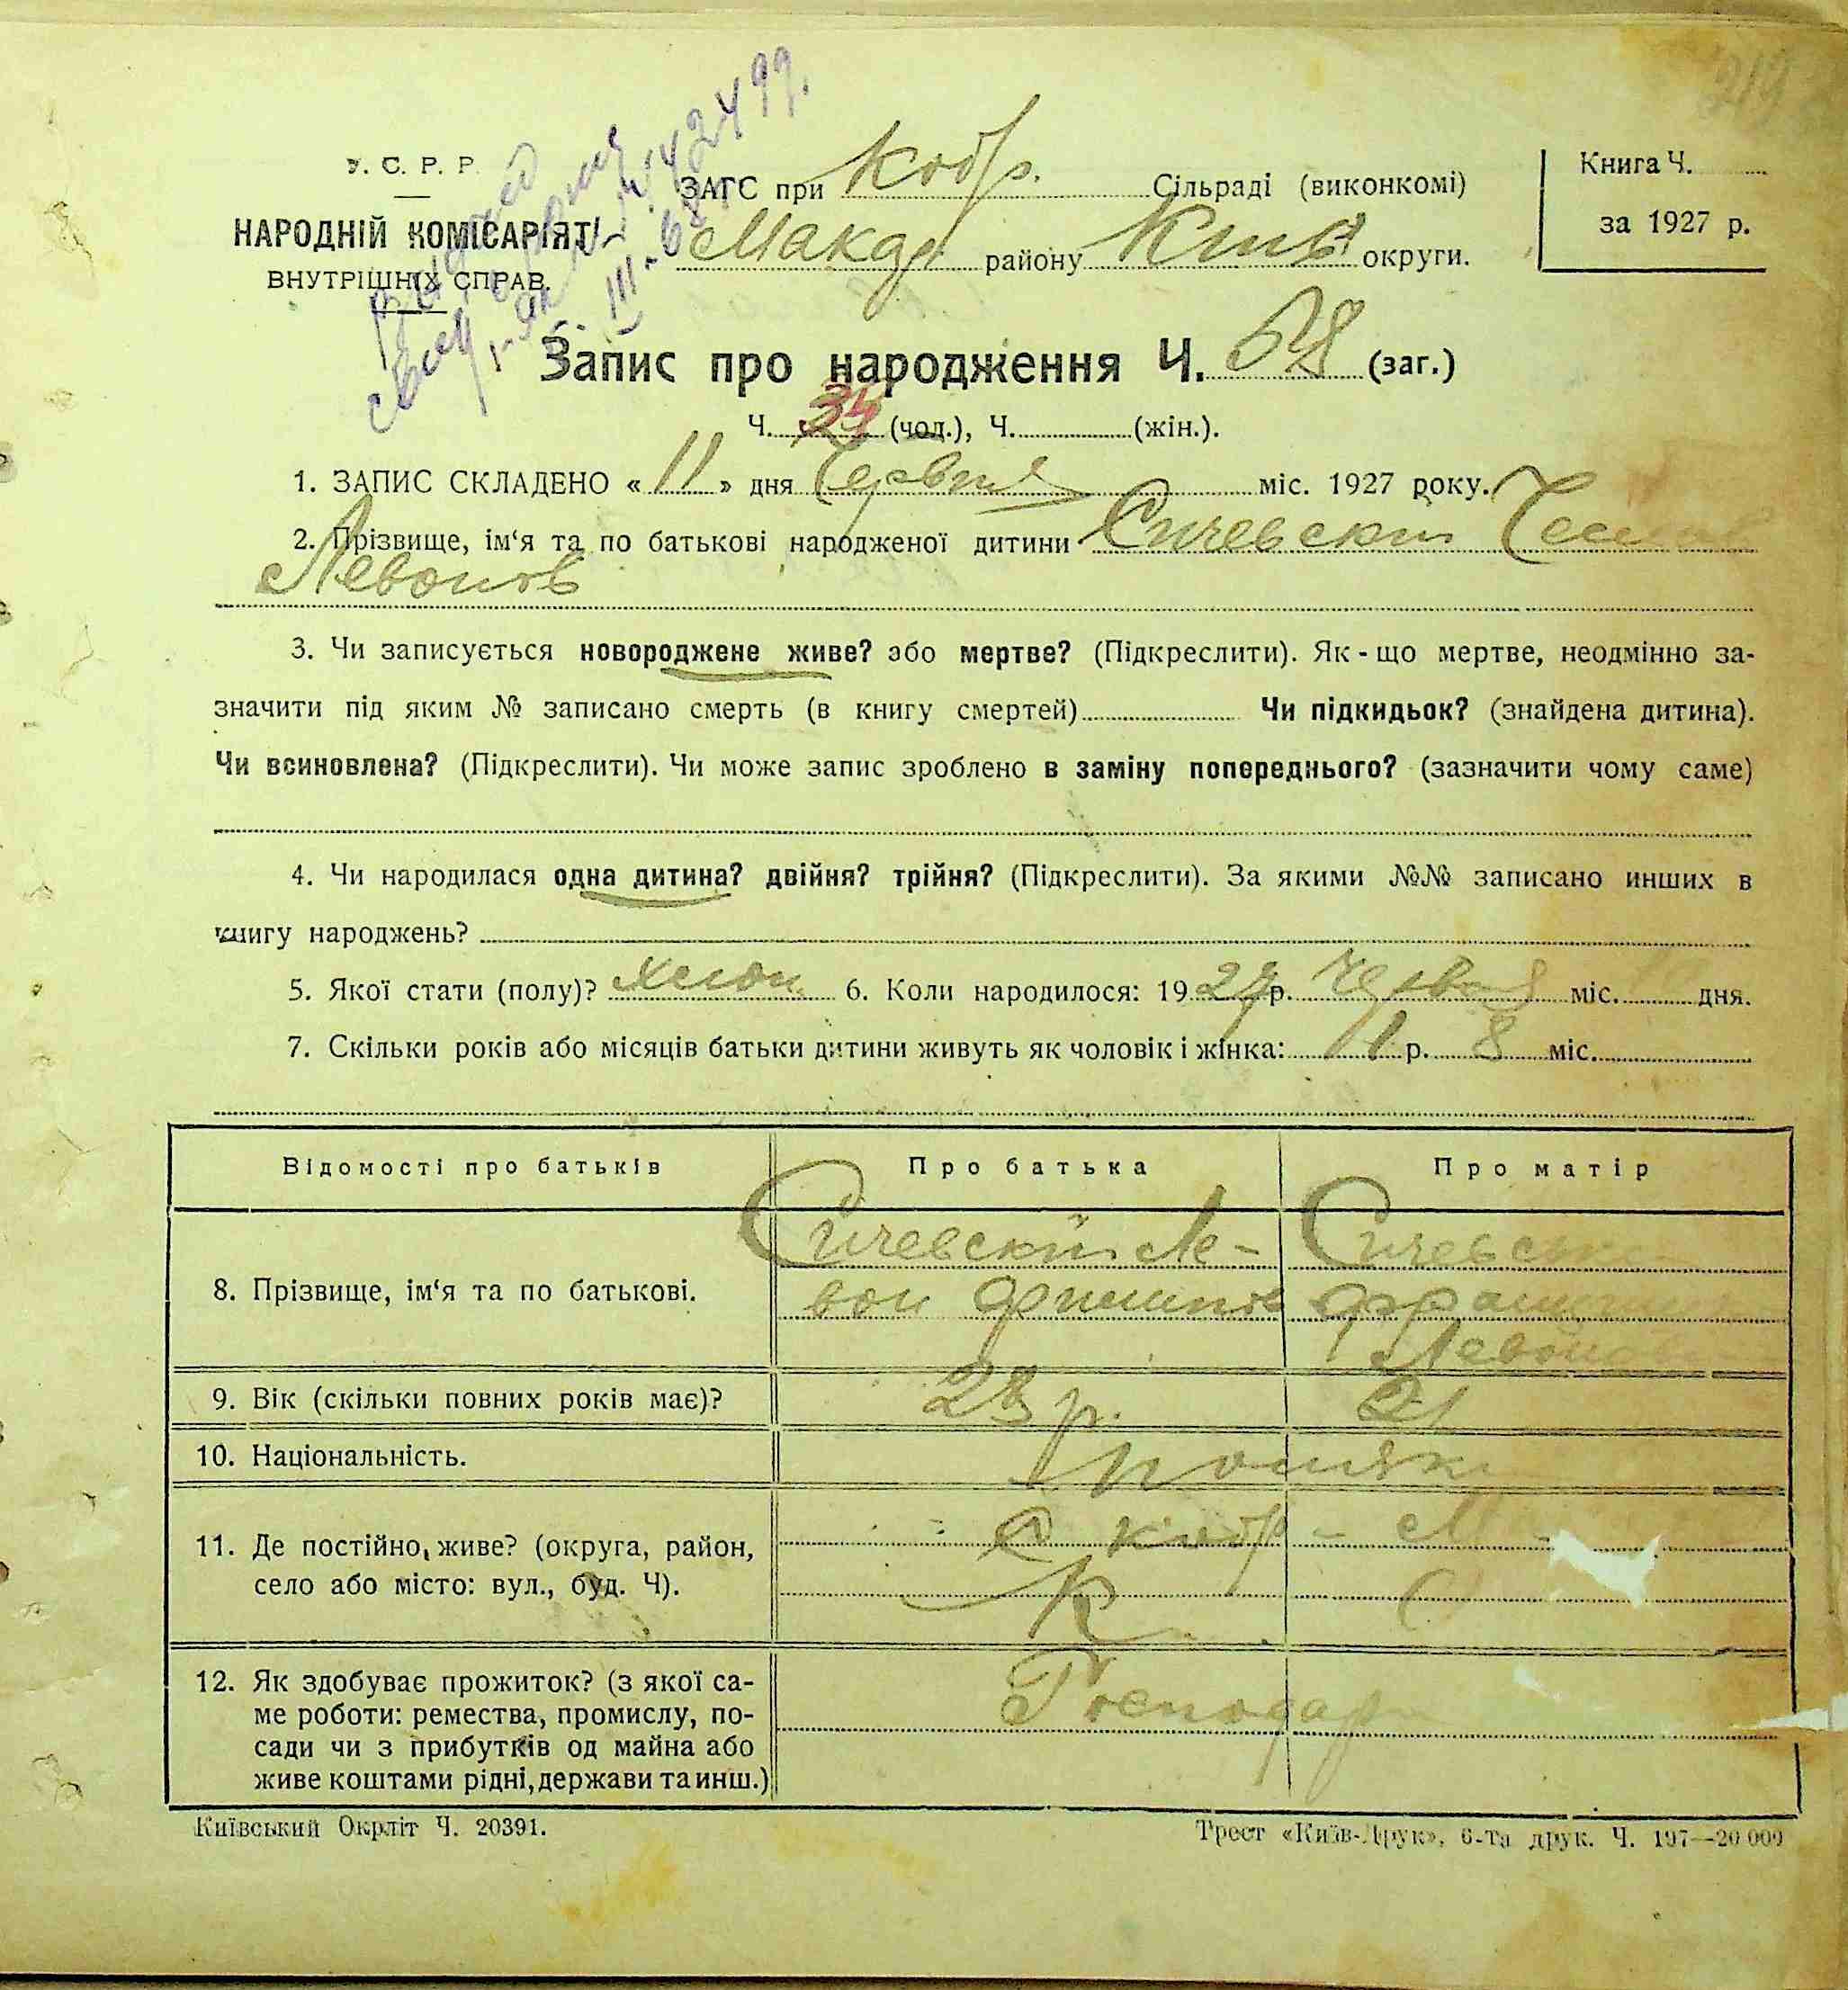 У. С. Р. Р.
НАРОДНІЙ КОМІСАРІЯТ
ВНУТРІШНІХ СПРАВ.
ЗАГС при Кобр. Сільраді (виконкомі)
Макар району Київ округи.
Книга Ч.
за 1927 р.
Запис про народження Ч. 58 (заг.)
Ч. 34 (чол.), Ч. (жін.).
1. ЗАПИС СКЛАДЕНО « 11 » дня Червня міс. 1927 року.
2. Прізвище, ім‘я та по батькові народженої дитини Сичевский
Левонов
3. Чи записується новороджене живе? або мертве? (Підкреслити). Як - що мертве, неодмінно за-
значити під яким № записано смерть (в книгу смертей) Чи підкидьок? (знайдена дитина).
Чи всиновлена? (Підкреслити). Чи може запис зроблено в заміну попереднього? (зазначити чому саме)
4. Чи народилася одна дитина? двійня? трійня? (Підкреслити). За якими №№ записано инших в
книгу народжень?
5. Якої стати (полу)? хлоп. 6. Коли народилося: 1927 р. Червня міс. дня.
7. Скільки років або місяців батьки дитини живуть як чоловік і жінка: р. 8 міс.
Відомості про батьків Про батька Про матір
8. Прізвище, ім‘я та по батькові. Сичевский Ле-
вон Филипов
Сичевська
9. Вік (скільки повних років має)? 23 р. 21
10. Національність. поляки
11. Де постійно живе? (округа, район,
село або місто: вул., буд. Ч).
с Кобр - М
К
12. Як здобуває прожиток? (з якої са-
ме роботи: ремества, промислу, по-
сади чи з прибутків од майна або
живе коштами рідні, держави та инш.)
Господар
Київський Окрліт Ч. 20391.
Трест «Київ-Друк», 6-та друк. Ч. 197—20 000